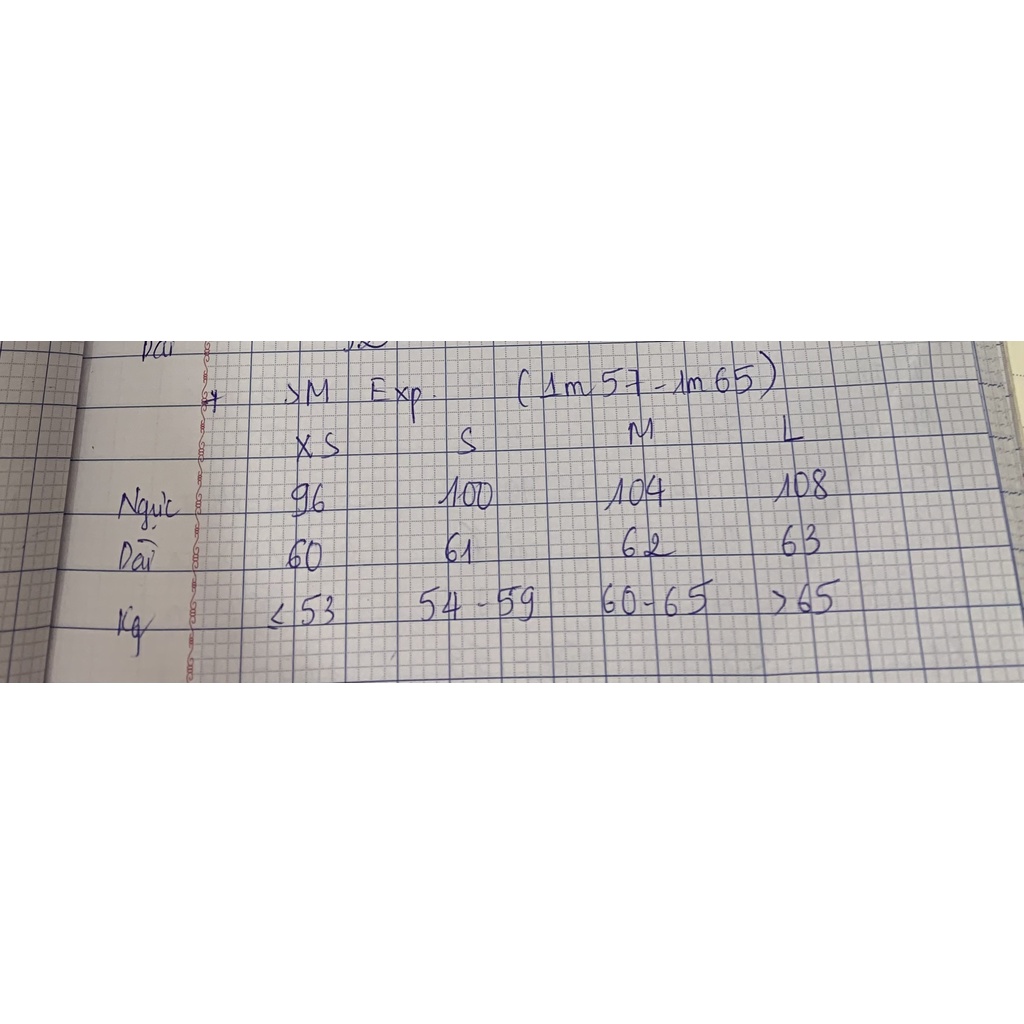 Dài
SM Exp. (1m57 - 1m65)
XS S M L
Ngực 96 100 104 108
Dài 60 61 62 63
Kg <53 54-59 60-65 >65